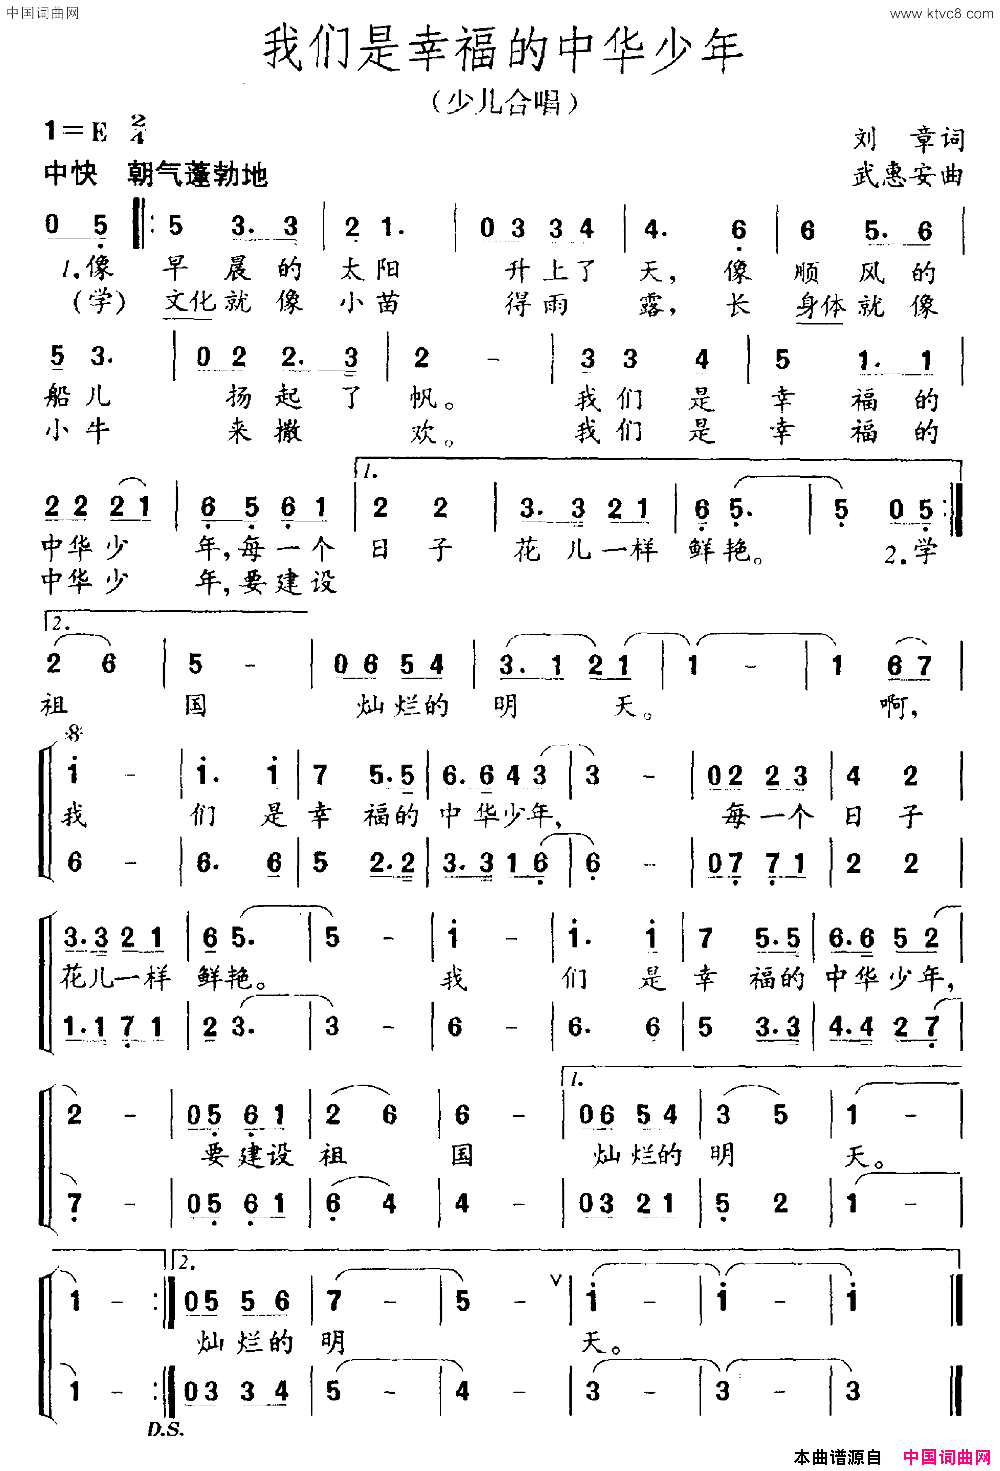 中国词曲网
www.ktvc8.com
我们是幸福的中华少年
(少儿合唱)
1=E 2/4
刘 章词
中快 朝气蓬勃地
武惠安曲
0 5 5 3. 3 2 1. 0 3 3 4 4. 6 6 5. 6
1.像 早 晨的 太阳 升上了 天, 像 顺 风的
(学) 文化就像 小苗 得雨 露, 长 身体就像
5 3. 0 2 2. 3 2 - 3 3 4 5 1. 1
船儿 扬起了 帆。 我们是 幸 福的
小牛 来撒 欢。 我们是 幸 福的
1.
2 2 2 1 6 5 6 1 2 2 3. 3 2 1 6 5. 5 0 5
中华少 年,每一个 日 子 花儿一样 鲜艳。 2.学
中华少 年,要建设
2.
2 6 5 - 0 6 5 4 3. 1 2 1 1 - 1 6 7
祖 国 灿烂的 明 天。 啊,
1 - 1. 1 7 5. 5 6. 6 4 3 3 - 0 2 2 3 4 2
我 们 是 幸 福的 中华少年, 每一个 日 子
6 - 6. 6 5 2. 2 3. 3 1 6 6 - 0 7 7 1 2 2
3. 3 2 1 6 5. 5 - 1 - 1. 1 7 5. 5 6. 6 5 2
花儿一样 鲜艳。 我 们 是 幸 福的 中华少年,
1. 1 7 1 2 3. 3 - 6 - 6. 6 5 3. 3 4. 4 2 7
1.
2 - 0 5 6 1 2 6 6 - 0 6 5 4 3 5 1 -
要建设 祖 国 灿烂的 明 天。
7 - 0 5 6 1 6 4 4 - 0 3 2 1 5 2 1 -
2.
1 - 0 5 5 6 7 - 5 - ∨ 1 - 1 - 1
灿烂的 明 天。
1 - 0 3 3 4 5 - 4 - 3 - 3 - 3
D.S.
本曲谱源自 中国词曲网
www.ktvc8.com